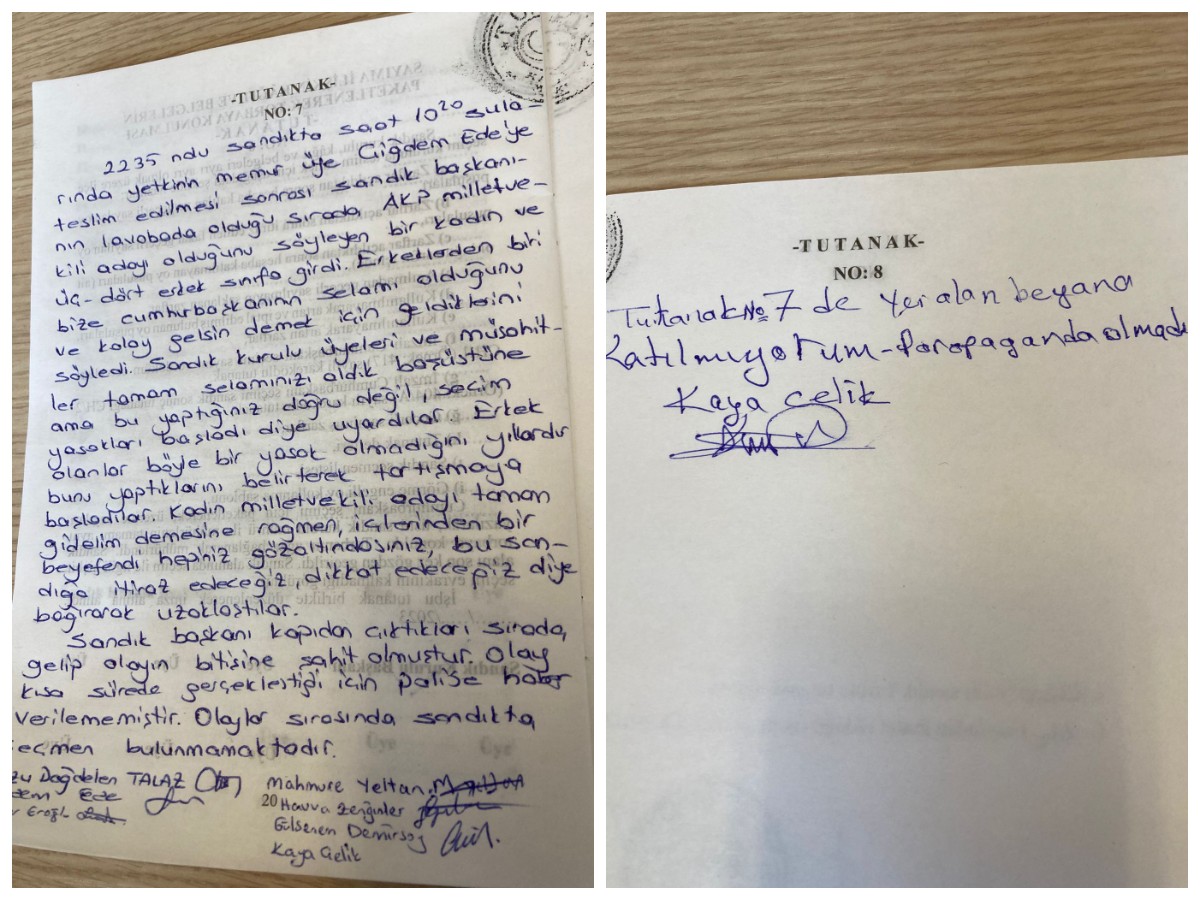 -TUTANAK-
NO: 7
2235 ndu sandıkta saat 10²⁰ sula-
rında yetkinin memur üye Çiğdem Ede'ye
teslim edilmesi sonrası sandık başkanı-
nın lavaboda olduğu sırada AKP milletve-
kili adayı olduğunu söyleyen bir kadın ve
üç-dört erkek sınıfa girdi. Erkeklerden biri
bize cumhurbaşkanının selamı olduğunu
ve kolay gelsin demek için geldiklerini
söyledi. Sandık kurulu üyeleri ve müşahit-
ler tamam selamınızı aldık başüstüne
ama bu yaptığınız doğru değil, seçim
yasakları başladı diye uyardılar. Erkek
olanlar böyle bir yasak olmadığını yıllardır
bunu yaptıklarını belirterek tartışmaya
başladılar. Kadın milletvekili adayı tamam
gidelim demesine rağmen, içlerinden bir
beyefendi hepiniz gözaltındasınız, bu san-
dığa itiraz edeceğiz, dikkat edeceğiz diye
bağırarak uzaklaştılar.
Sandık başkanı kapıdan çıktıkları sırada,
gelip olayın bitişine şahit olmuştur. Olay
kısa sürede gerçekleştiği için polise haber
verilememiştir. Olaylar sırasında sandıkta
eçmen bulunmamaktadır.
zu Dağdelen TALAZ
dem Ede
r Eroğl
Mahmure Yeltan
20 Havva Zenginler
Gülseren Demirsoy
Kaya Çelik
-TUTANAK-
NO: 8
Tutanak No 7 de yer alan beyana
Katılmıyorum-Poropaganda olmadı
Kaya Çelik